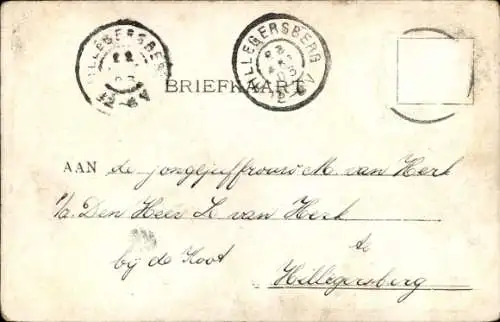 HILLEGERSBERG
HILLEGERSBERG
BRIEFKAART
AAN de jongejuffrouw M. van Herk
p/a. Den Heer L van Herk
te
bij de Koot
Hillegersberg